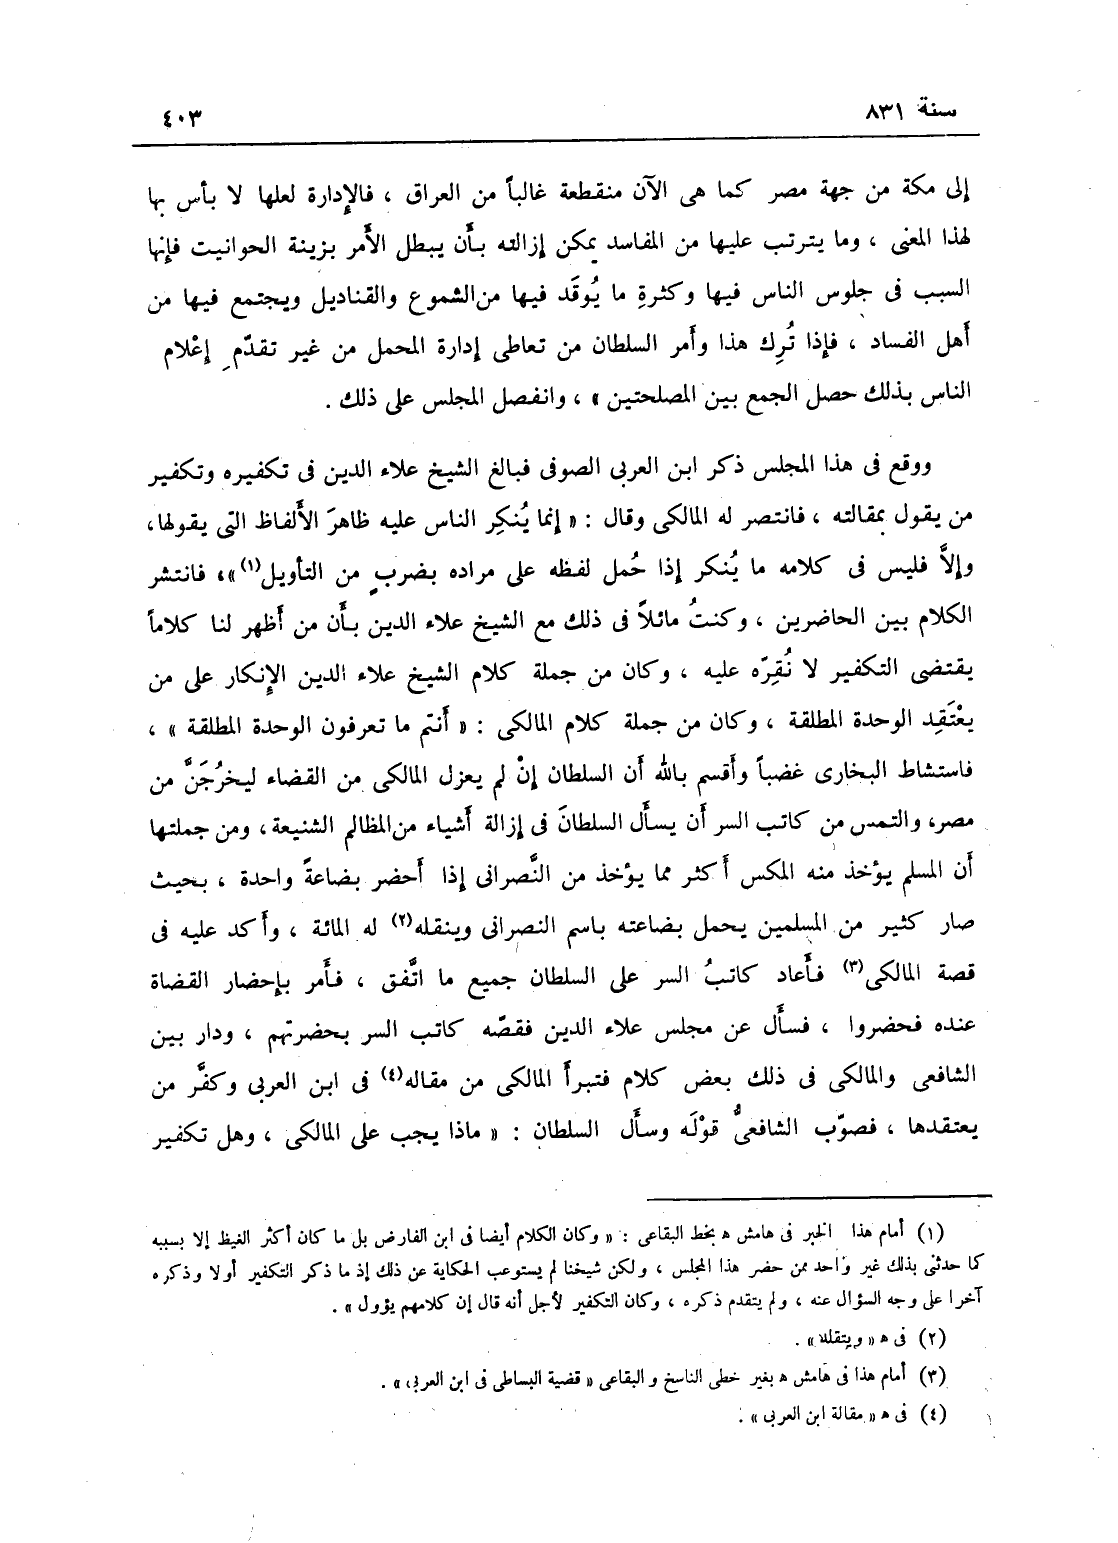 سنة ٨٣١
٤٠٣
إلى مكة من جهة مصر كما هى الآن منقطعة غالباً من العراق ، فالإدارة لعلها لا بأس بها
لهذا المعنى ، وما يترتب عليها من المفاسد يمكن إزالته بأَن يبطل الأَمر بزينة الحوانيت فإنها
السبب فى جلوس الناس فيها وكثرةِ ما يُوقَد فيها من الشموع والقناديل ويجتمع فيها من
أَهل الفساد ، فإذا تُرِك هذا وأَمر السلطان من تعاطى إدارة المحمل من غير تقدّمِ إعْلام
الناس بذلك حصل الجمع بين المصلحتين » ، وانفصل المجلس على ذلك .
ووقع فى هذا المجلس ذكر ابن العربى الصوفى فبالغ الشيخ علاء الدين فى تكفيره وتكفير
من يقول بمقالته ، فانتصر له المالكى وقال : « إنما يُنكِر الناس عليه ظاهرَ الأَلفاظ التى يقولها،
وإلاَّ فليس فى كلامه ما يُنكر إذا حُمل لفظه على مراده بضربٍ من التأويل(١) »، فانتشر
الكلام بين الحاضرين ، وكنتُ مائلاً فى ذلك مع الشيخ علاء الدين بأَن من أَظهر لنا كلاماً
يقتضى التكفير لا نُقِرّه عليه ، وكان من جملة كلام الشيخ علاء الدين الإنكار على من
يعْتَقِد الوحدة المطلقة ، وكان من جملة كلام المالكى : « أَنتم ما تعرفون الوحدة المطلقة » ،
فاستشاط البخارى غضباً وأَقسم بالله أَن السلطان إنْ لم يعزل المالكى من القضاء ليخرُجَنَّ من
مصر، والتمس من كاتب السر أَن يسأَل السلطانَ فى إزالة أَشياء من المظالم الشنيعة، ومن جملتها
أَن المسلم يؤخذ منه المكس أَكثر مما يؤخذ من النَّصرانى إذا أَحضر بضاعةً واحدة ، بحيث
صار كثير من المسلمين يحمل بضاعته باسم النصرانى وينقله(٢) له المائة ، وأَكد عليه فى
قصة المالكى(٣) فأَعاد كاتبُ السر على السلطان جميع ما اتَّفق ، فأَمر بإحضار القضاة
عنده فحضروا ، فسأَل عن مجلس علاء الدين فقصّه كاتب السر بحضرتهم ، ودار بين
الشافعى والمالكى فى ذلك بعض كلام فتبرأَ المالكى من مقاله(٤) فى ابن العربى وكفَّر من
يعتقدها ، فصوّب الشافعىُّ قوْلَه وسأَل السلطان : « ماذا يجب على المالكى ، وهل تكفير
(١) أمام هذا الخبر فى هامش ھ بخط البقاعى : « وكان الكلام أيضا فى ابن الفارض بل ما كان أكثر الغيظ إلا بسببه
كما حدثنى بذلك غير واحد ممن حضر هذا المجلس ، ولكن شيخنا لم يستوعب الحكاية عن ذلك إذ ما ذكر التكفير أولا وذكره
آخرا على وجه السؤال عنه ، ولم يتقدم ذكره ، وكان التكفير لأجل أنه قال إن كلامهم يؤول » .
(٢) فى ھ « ويتقللا » .
(٣) أمام هذا فى هامش ھ بغير خطى الناسخ و البقاعى « قضية البساطى فى ابن العربى » .
(٤) فى ھ « مقالة ابن العربى » .